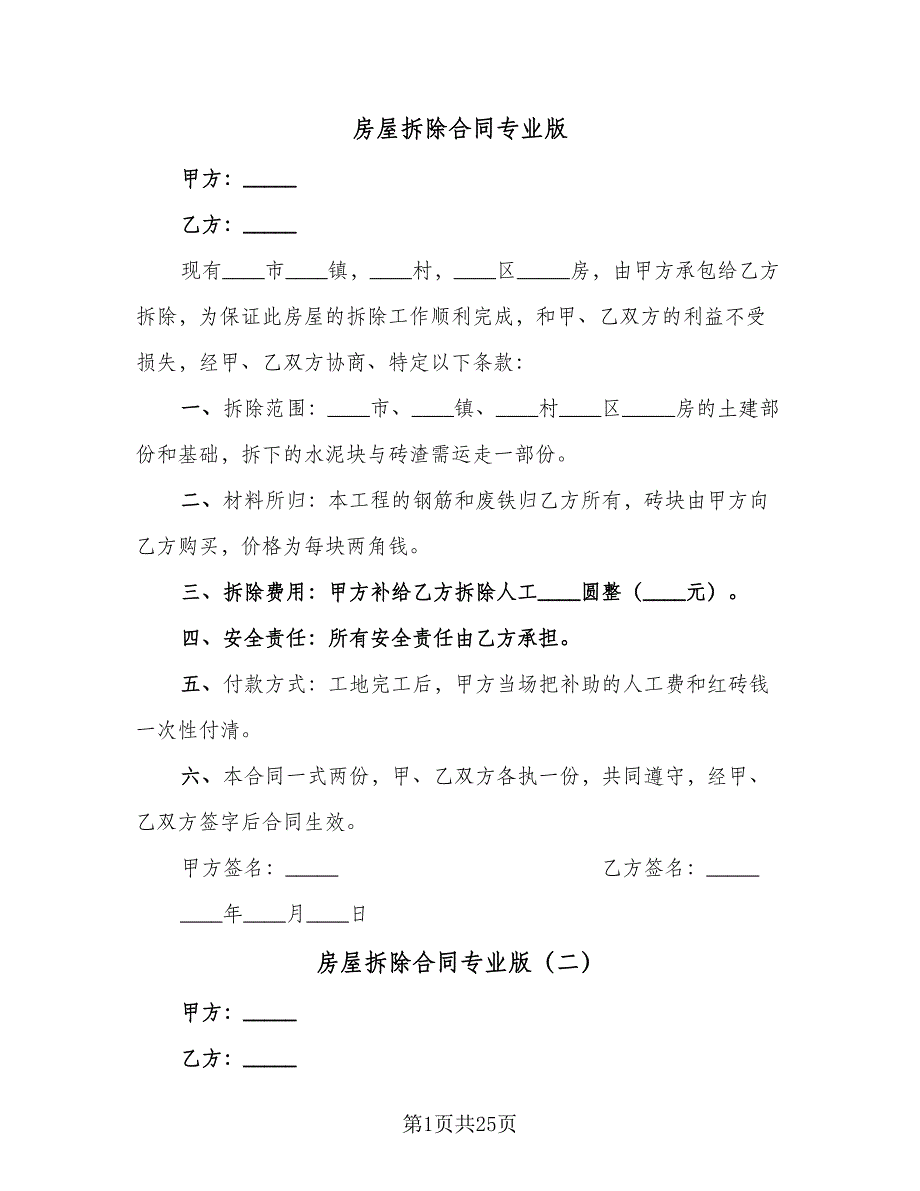 房屋拆除合同专业版
甲方：_____
乙方：_____
现有____市____镇，____村，____区_____房，由甲方承包给乙方
拆除，为保证此房屋的拆除工作顺利完成，和甲、乙双方的利益不受
损失，经甲、乙双方协商、特定以下条款：
一、拆除范围：____市、____镇、____村____区_____房的土建部
份和基础，拆下的水泥块与砖渣需运走一部份。
二、材料所归：本工程的钢筋和废铁归乙方所有，砖块由甲方向
乙方购买，价格为每块两角钱。
三、拆除费用：甲方补给乙方拆除人工____圆整（____元）。
四、安全责任：所有安全责任由乙方承担。
五、付款方式：工地完工后，甲方当场把补助的人工费和红砖钱
一次性付清。
六、本合同一式两份，甲、乙双方各执一份，共同遵守，经甲、
乙双方签字后合同生效。
甲方签名：_____ 乙方签名：_____
____年____月____日
房屋拆除合同专业版（二）
甲方：_____
乙方：_____
第1页共25页